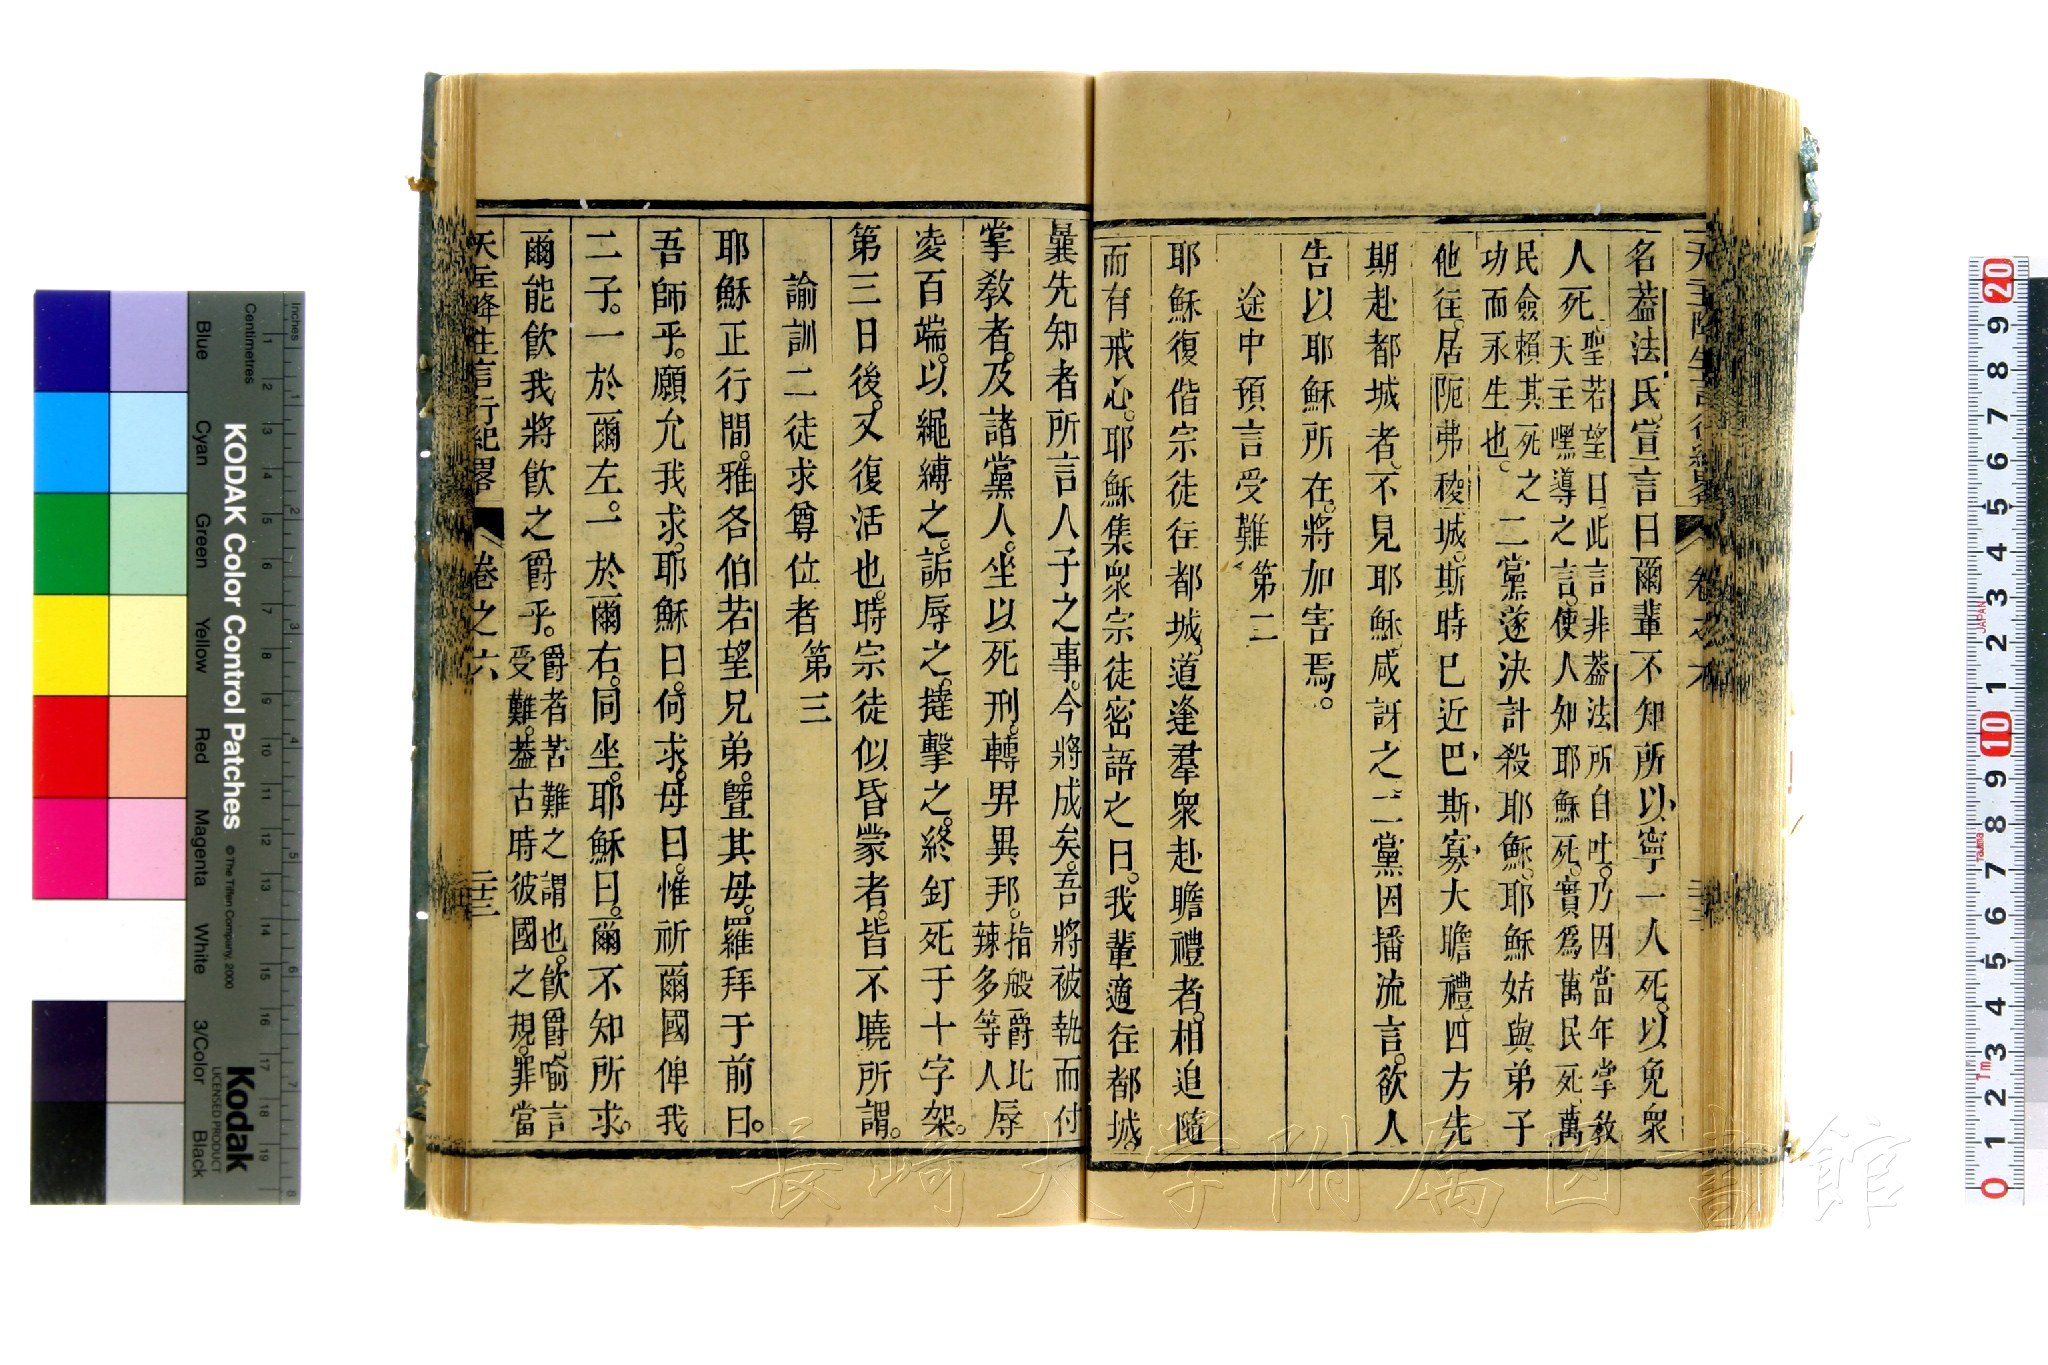 名葢法氏宣言曰爾輩不知所以寧一人死以免衆
人死聖若望曰此言非葢法所自吐乃因當年掌教
天主嘿導之言使人知耶穌死實爲萬民死萬
民僉賴其死之
功而永生也
二黨遂決計殺耶穌耶穌姑與弟子
他往居阨弗稜城斯時已近巴斯寡大瞻禮四方先
期赴都城者不見耶穌咸訝之二黨因播流言欲人
告以耶穌所在將加害焉
途中預言受難 第二
耶穌復偕宗徒往都城道逢羣衆赴瞻禮者相追隨
而有戒心耶穌集衆宗徒密語之曰我輩適往都城
曩先知者所言人子之事今將成矣吾將被執而付
掌教者及諸黨人坐以死刑轉畀異邦
指般爵比
辣多等人
辱
凌百端以繩縛之詬辱之撻擊之終釘死于十字架
第三日後又復活也時宗徒似昏蒙者皆不曉所謂
諭訓二徒求尊位者 第三
耶穌正行間雅各伯若望兄弟曁其母羅拜于前曰
吾師乎願允我求耶穌曰何求母曰惟祈爾國俾我
二子一於爾左一於爾右同坐耶穌曰爾不知所求
爾能飮我將飮之爵乎
爵者苦難之謂也飮爵喻言
受難葢古時彼國之規罪當
天主降生言行紀畧 卷之六 二十三
KODAK Color Control Patches
© The Tiffen Company, 2000
Kodak
LICENSED PRODUCT
Inches
Centimetres
Blue
Cyan
Green
Yellow
Red
Magenta
White
3/Color
Black
JAPAN
Tajima
長崎大学附属図書館